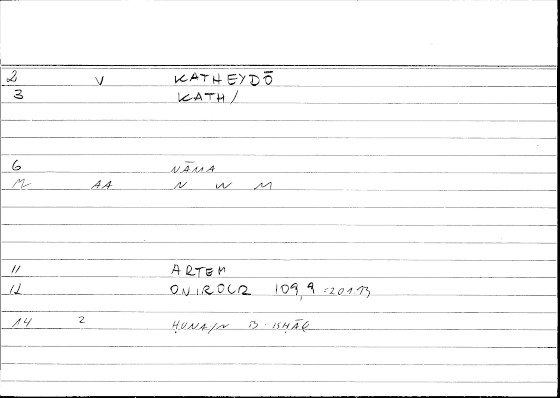 2 V KATHEYDŌ
3 KATH/
6 NĀMA
M AA N W M
11 ARTEM
12 ONIROCR 109,9 = 201.13
14 2 ḤUNAJN B. ISḤĀQ